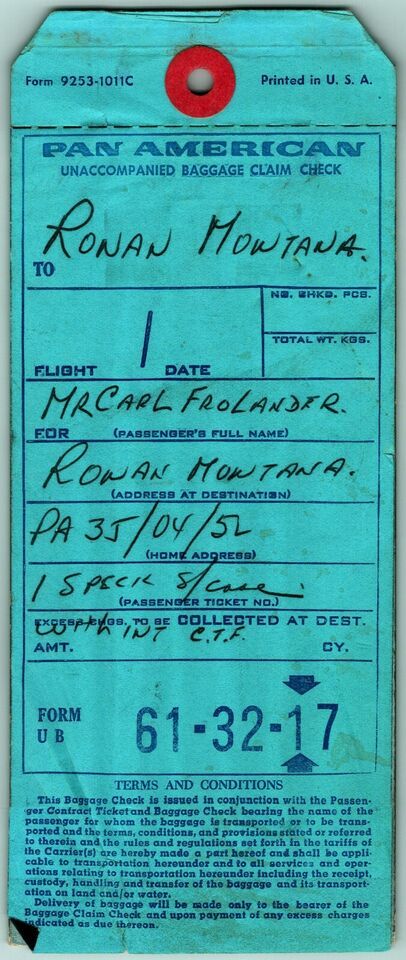 Form 9253-1011C Printed in U. S. A.
PAN AMERICAN
UNACCOMPANIED BAGGAGE CLAIM CHECK
RONAN MONTANA.
TO
NO. CHKD. PCS.
/
TOTAL WT. KGS.
FLIGHT DATE
MR CARL FROLANDER.
FOR (PASSENGER'S FULL NAME)
RONAN MONTANA.
(ADDRESS AT DESTINATION)
PA 35/04/52
(HOME ADDRESS)
1 SPECK S/case.
(PASSENGER TICKET NO.)
EXCESS CHGS. TO BE COLLECTED AT DEST.
INT C.T.F.
AMT. CY.
FORM
U B
61-32-17
TERMS AND CONDITIONS
This Baggage Check is issued in conjunction with the Passen-
ger Contract Ticket and Baggage Check bearing the name of the
passenger for whom the baggage is transported or to be trans-
ported and the terms, conditions, and provisions stated or referred
to therein and the rules and regulations set forth in the tariffs of
the Carrier(s) are hereby made a part hereof and shall be appli-
cable to transportation hereunder and to all services and oper-
ations relating to transportation hereunder including the receipt,
custody, handling and transfer of the baggage and its transport-
ation on land and/or water.
Delivery of baggage will be made only to the bearer of the
Baggage Claim Check and upon payment of any excess charges
indicated as due thereon.